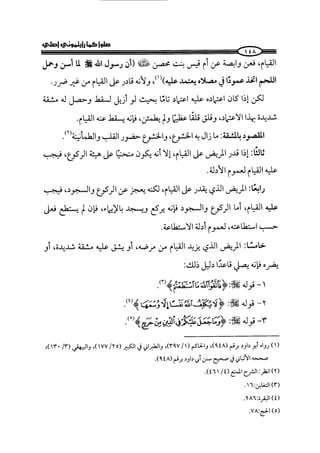 صلوا كما رأيتموني أصلي
١٤٨
القيام، فعن وابصة عن أم قيس بنت محصن ﷺ (أن رسول الله ﷺ لما أسن وحمل
اللحم اتخذ عمودًا في مصلاه يعتمد عليه)(١)، ولأنه قادر على القيام من غير ضرر.
لكن إذا كان اعتماده عليه اعتماد تامًّا بحيث لو أزيل لسقط وحصل له مشقة
شديدة بهذا الاعتماد، وقلق قلقًا عظيمًا ولم يطمئن، فإنه يسقط عنه القيام.
المقصود بالمشقة: ما زال به الخشوع، والخشوع حضور القلب والطمأنينة(٢).
ثالثًا: إذا قدر المريض على القيام، إلا أنه يكون منحنيًا على هيئة الركوع، فيجب
عليه القيام لعموم الأدلة.
رابعًا: المريض الذي يقدر على القيام، لكنه يعجز عن الركوع والسجود، فيجب
عليه القيام، أما الركوع والسجود فإنه يركع ويسجد بالإيماء، فإن لم يستطع فعلى
حسب استطاعته، لعموم أدلة الاستطاعة.
خامسًا: المريض الذي يزيد القيام من مرضه، أو يشق عليه مشقة شديدة، أو
يضره فإنه يصلي قاعدًا دليل ذلك:
١- قوله ﷻ: ﴿فَاتَّقُوا اللَّهَ مَا اسْتَطَعْتُمْ﴾(٣).
٢- قوله ﷻ: ﴿لَا يُكَلِّفُ اللَّهُ نَفْسًا إِلَّا وُسْعَهَا﴾(٤).
٣- قوله ﷻ: ﴿وَمَا جَعَلَ عَلَيْكُمْ فِي الدِّينِ مِنْ حَرَجٍ﴾(٥).
(١) رواه أبو داود برقم (٩٤٨)، والحاكم (١/ ٣٩٧)، والطبراني في الكبير (٢٥/ ١٧٧)، والبيهقي (٣/ ١٣٠)،
صححه الألباني في صحيح سنن أبي داود برقم (٩٤٨).
(٢) انظر: الشرح الممتع (٤/ ٤٦١).
(٣) التغابن: ١٦.
(٤) البقرة: ٢٨٦.
(٥) الحج: ٧٨.